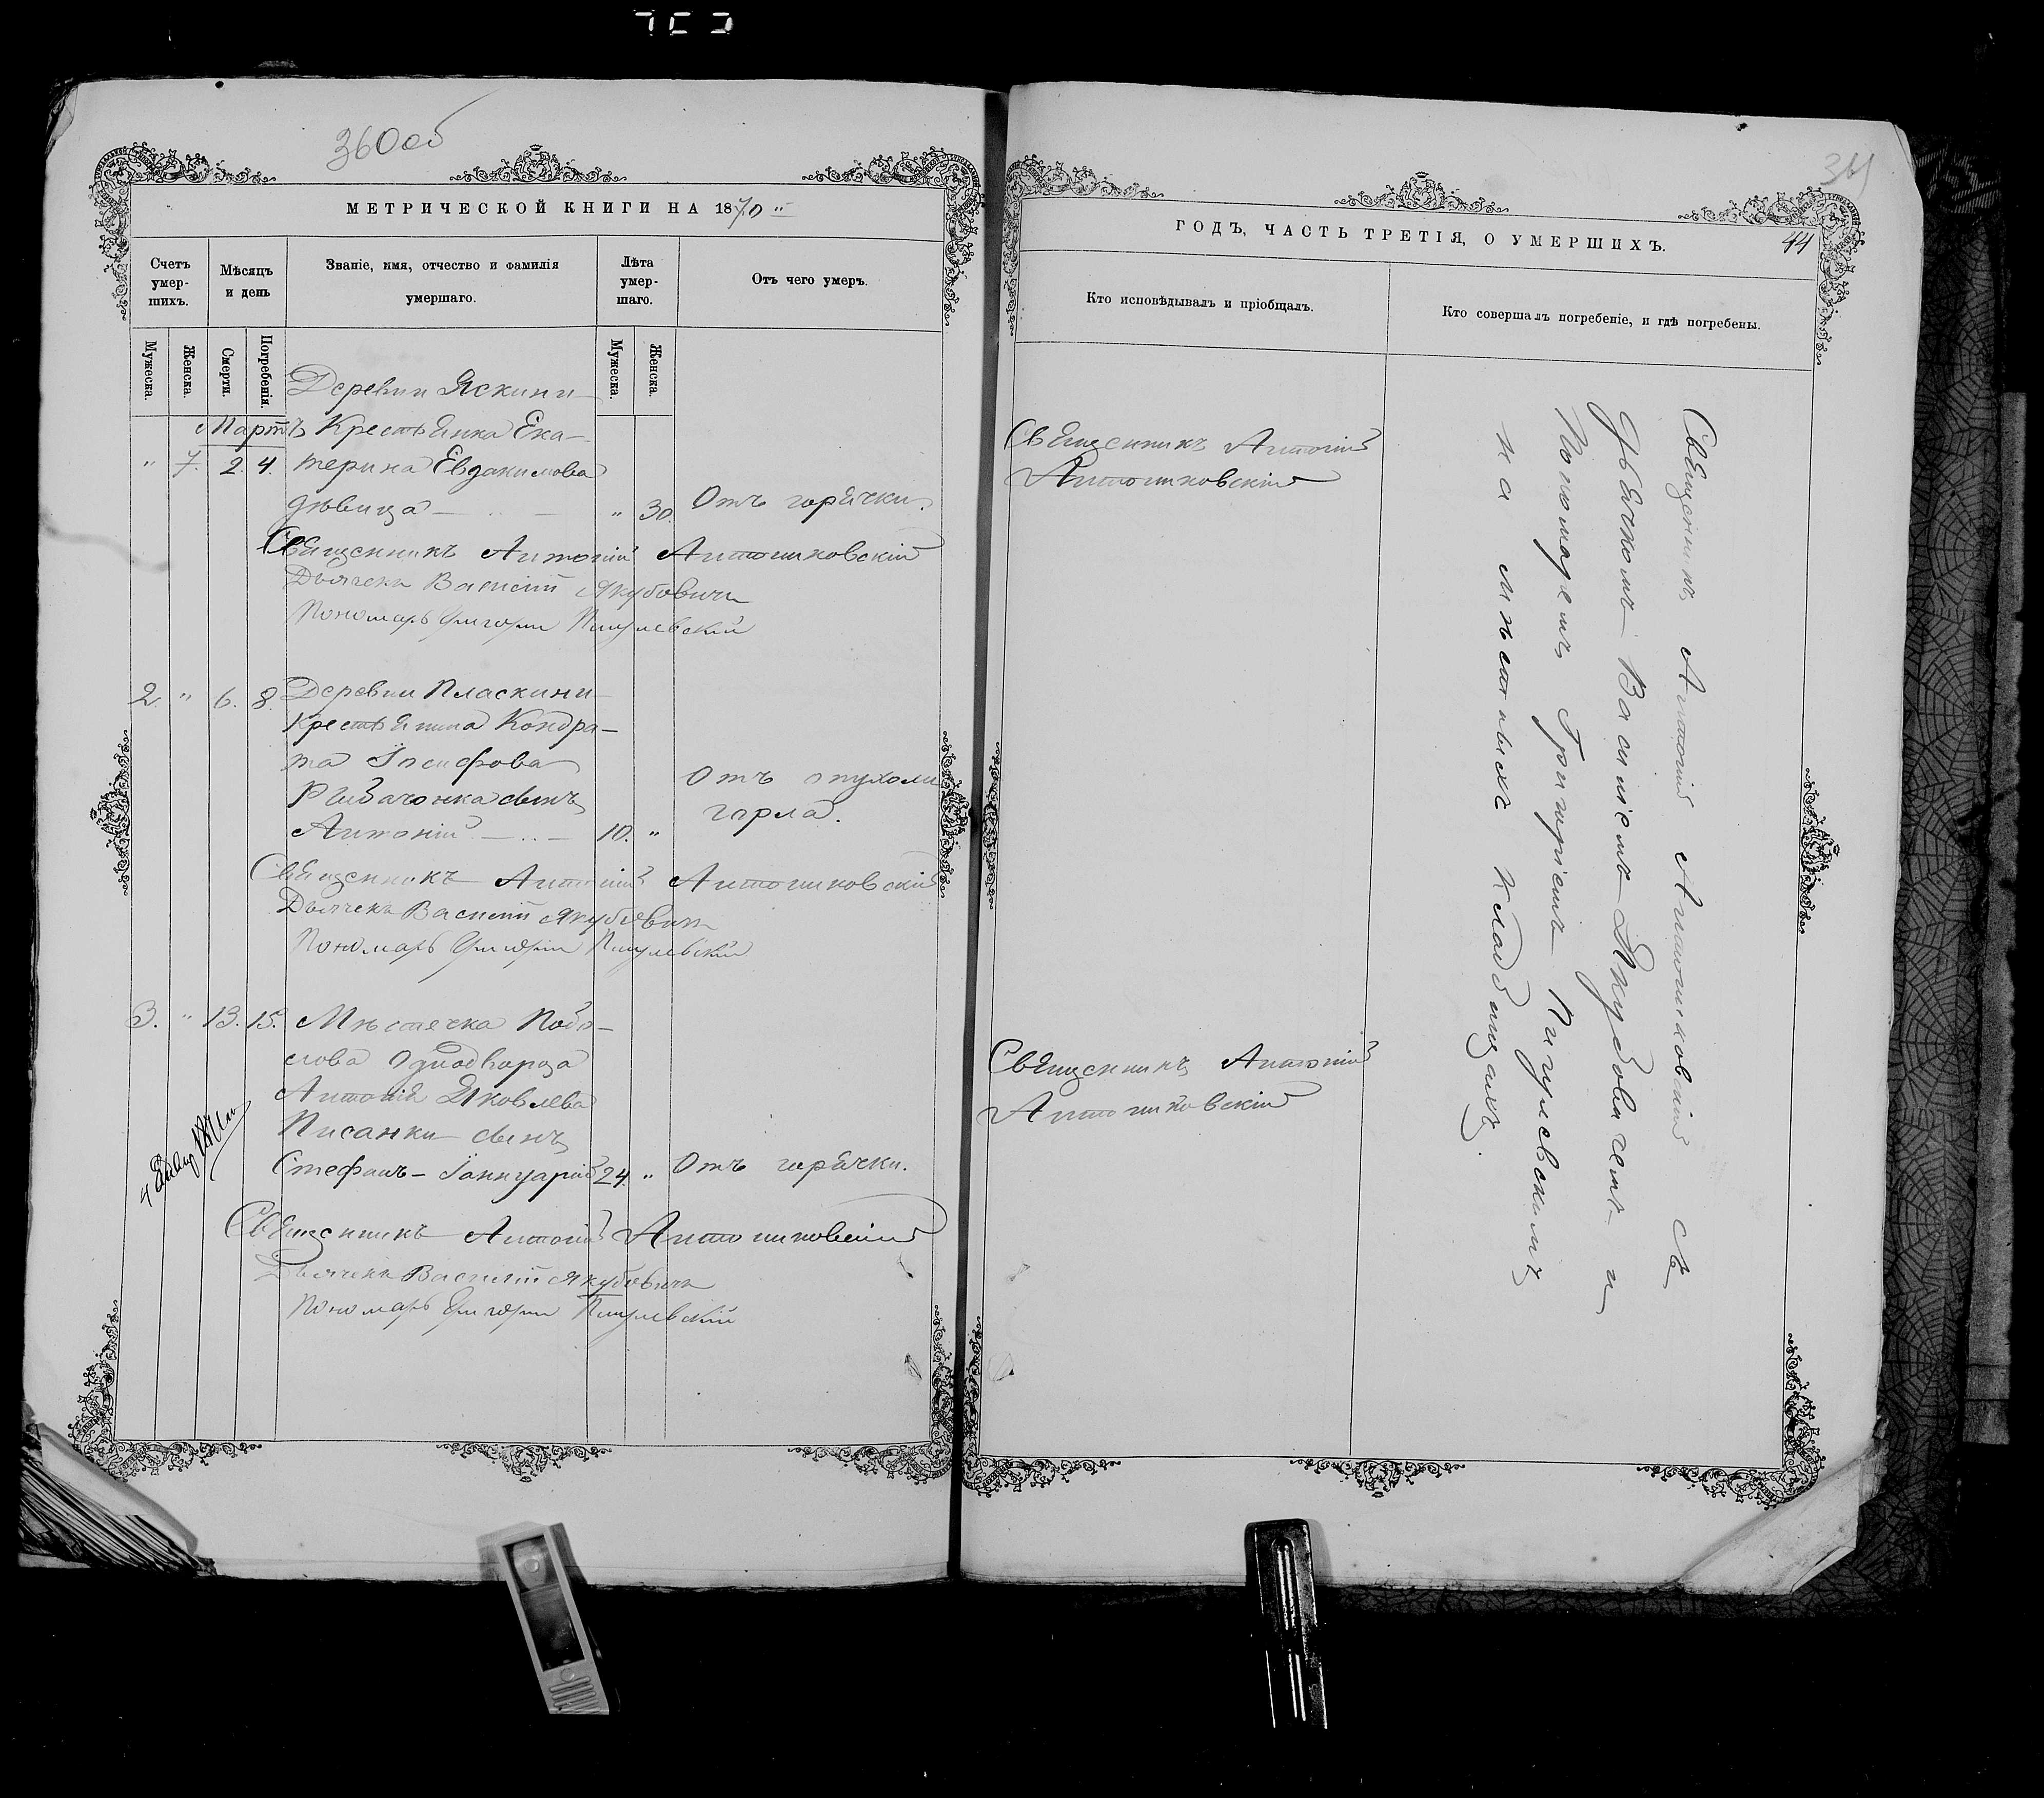 360об
МЕТРИЧЕСКОЙ КНИГИ НА 1870
Счетъ умер-
шихъ.
Мѣсяцъ
и день
Званіе, имя, отчество и фамилія
умершаго.
Лѣта
умер-
шаго.
Отъ чего умеръ.
Мужеска.
Женска.
Смерти.
Погребенія.
Мужеска.
Женска.
Деревни Яскини
Мартъ Крестьянка Ека-
" 7. 2. 4. терина Евдокимова
дѣвица " 30. Отъ горячки.
Священникъ Антоній Антошковскій
Дьячекъ Василій Якубовичъ
Пономарь Григорій
2. " 6. 8. Деревни Пласкини
Крестьянина Кондра-
та Іосифова
Рыбачонка сынъ
Отъ опухоли
горла.
Антоній 10. "
Священникъ Антоній Антошковскій
Дьячекъ Василій Якубовичъ
Пономарь Григорій
3. " 13. 15. Мѣстечка Побо-
лова Однодворца
Антонія Яковлева
Писанки сынъ
Стефанъ-Іаннуарій 24. " Отъ горячки.
Священникъ Антоній Антошковскій
Дьячекъ Василій Якубовичъ
Пономарь Григорій
ГОДЪ, ЧАСТЬ ТРЕТІЯ, О УМЕРШИХЪ.
44
Кто исповѣдывалъ и пріобщалъ.
Кто совершалъ погребеніе, и гдѣ погребены.
Священникъ Антоній
Антошковскій
Священникъ Антоній
Антошковскій
Священникъ Антоній Антошковскій съ
Дьячкомъ Василіемъ Якубовичемъ и
Пономаремъ Григоріемъ
на мѣстныхъ кладбищахъ.